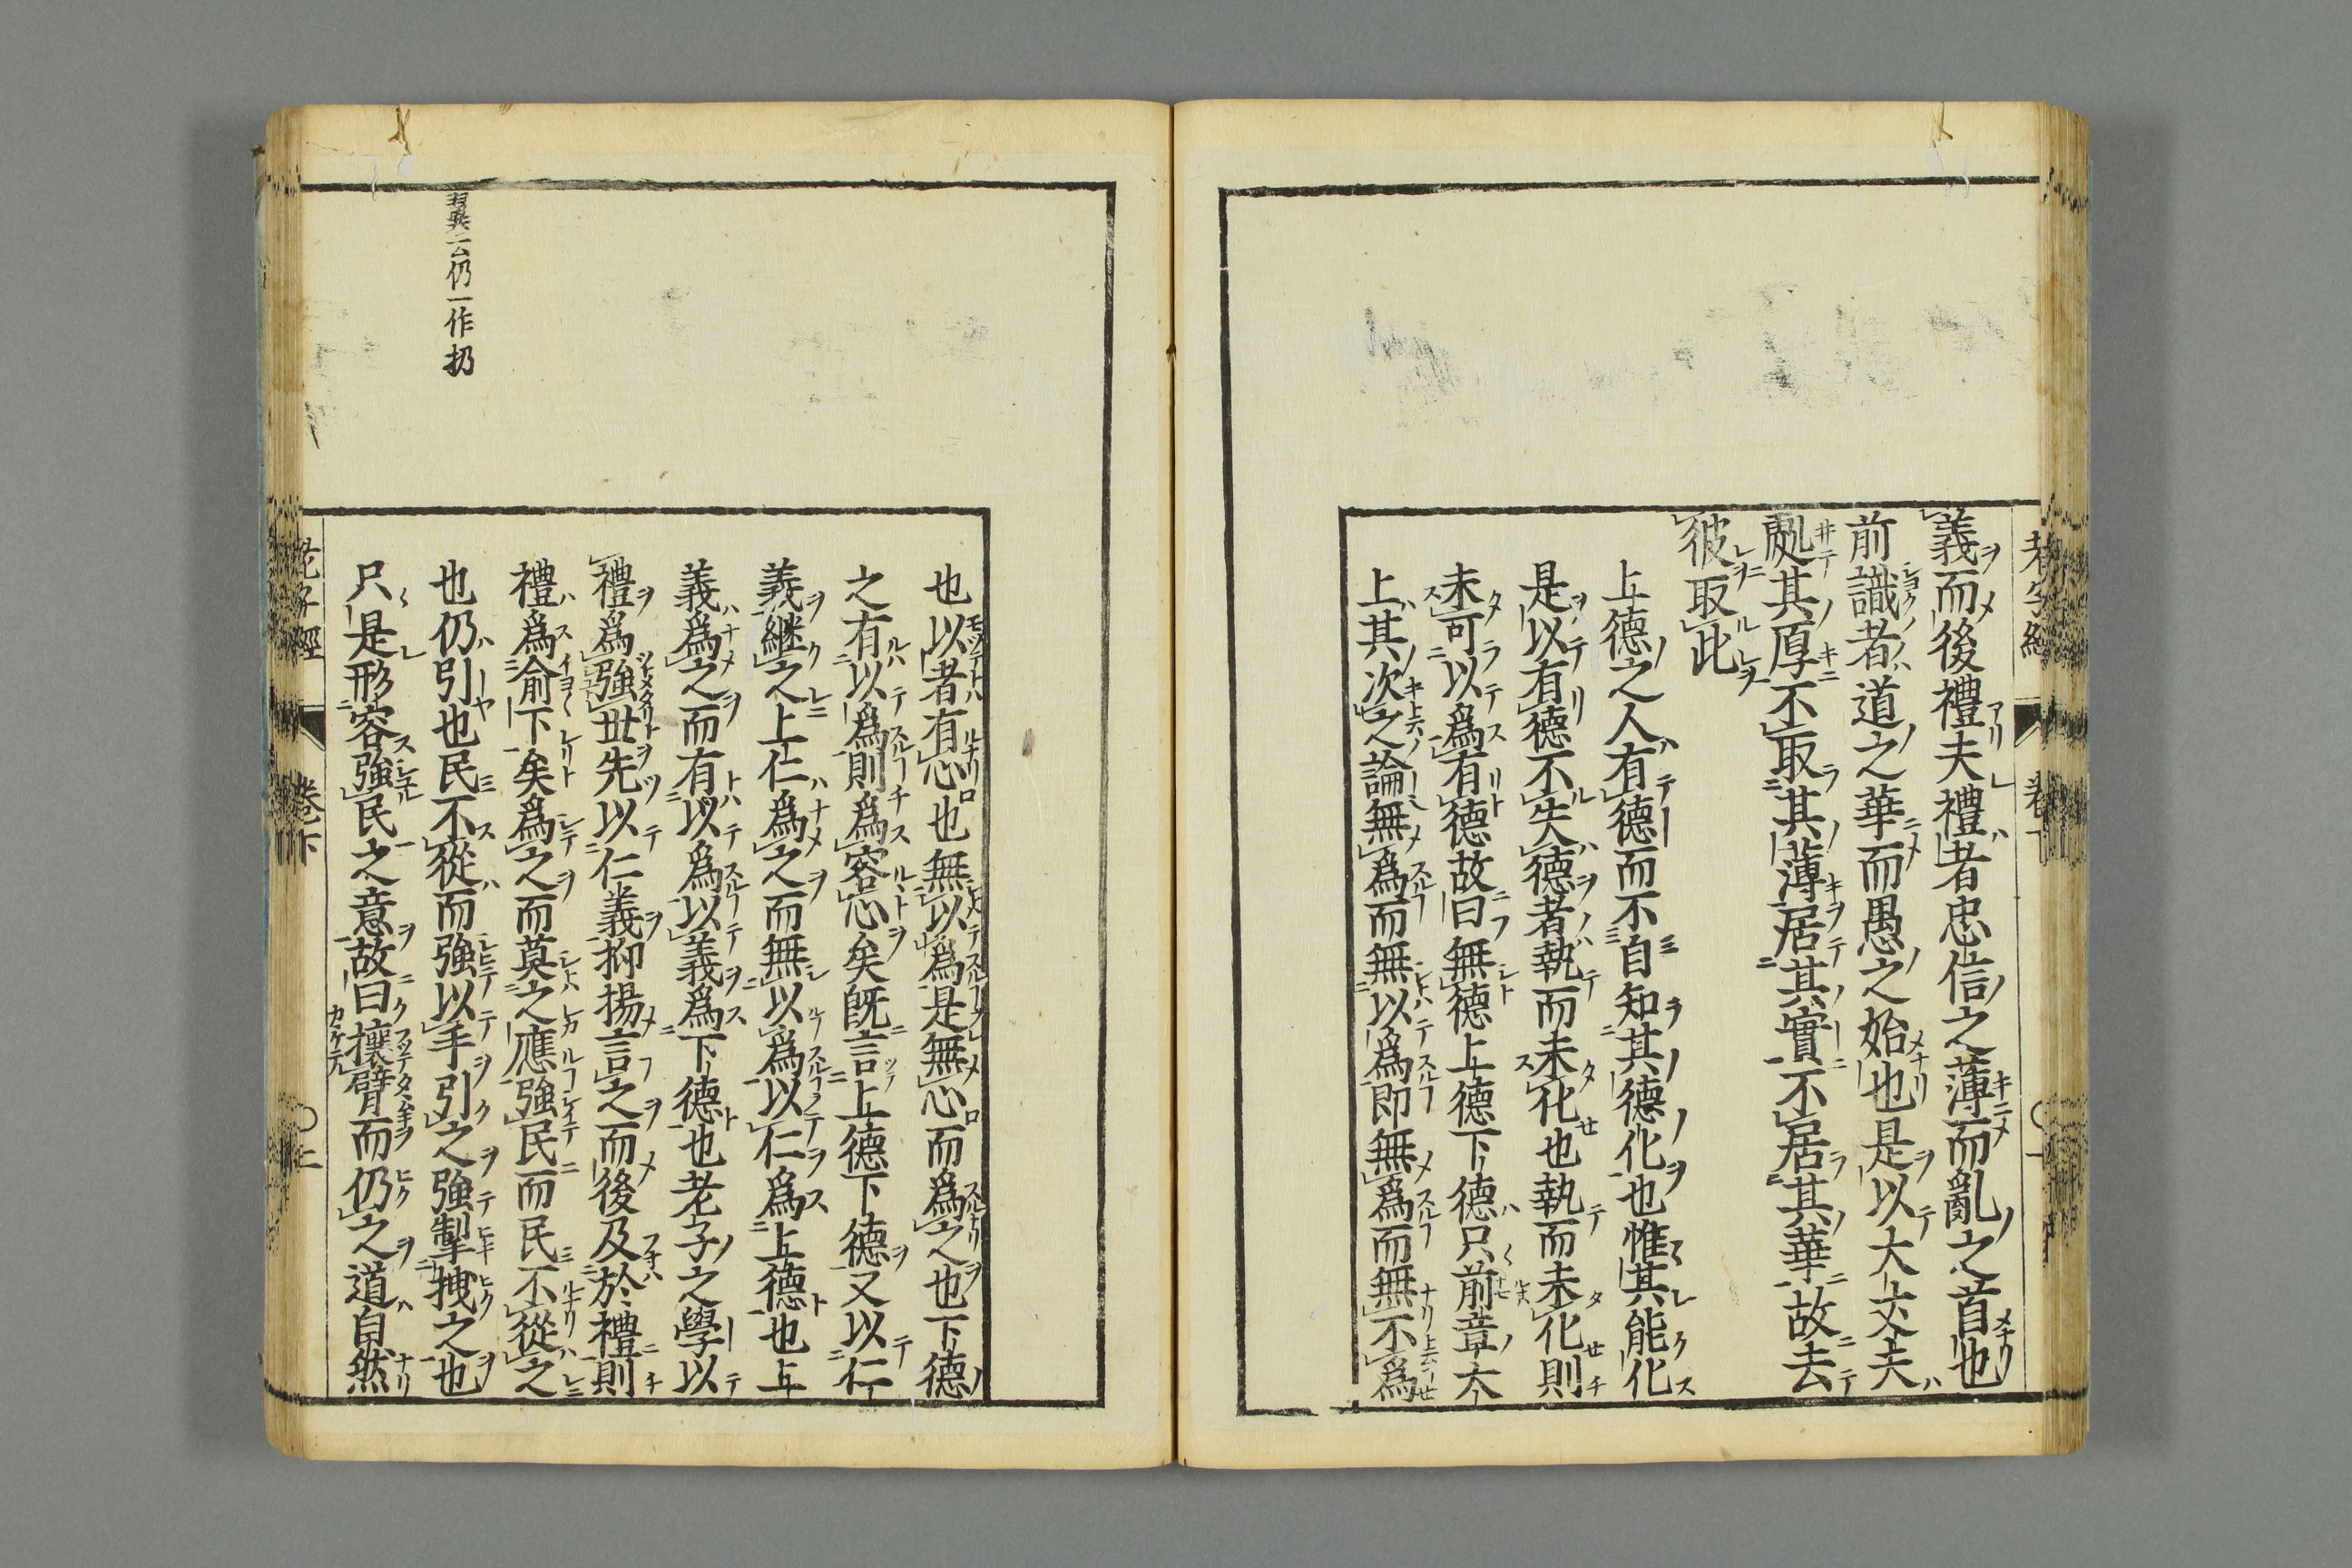 義而後禮夫禮者忠信之薄而亂之首也
前識者道之華而愚之始也是以大丈夫
處其厚不取其薄居其實不居其華故去
彼取此
上德之人有德而不自知其德化也惟其能化
是以有德不失德者執而未化也執而未化則
未可以爲有德故曰無德上德下德只前章太
上其次之論無爲而無以爲即無爲而無不爲
也以者有心也無以爲是無心而爲之也下德
之有以爲則爲容心矣既言上德下德又以仁
義継之上仁爲之而無以爲以仁爲上德也上
義爲之而有以爲以義爲下德也老子之學以
禮爲強世先以仁義抑揚言之而後及於禮則
禮爲渝下矣爲之而莫之應強民而民不從之
也仍引也民不從而強以手引之強掣拽之也
只是形容強民之意故曰攘臂而仍之道自然
翼云仍一作扔
老子經 卷下